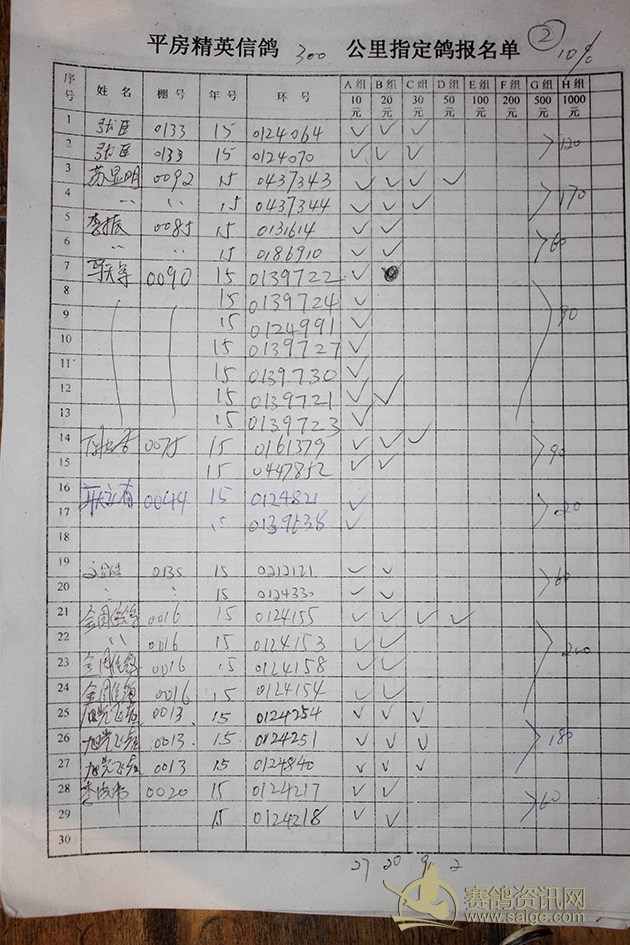 ②
平房精英信鸽 300 公里指定鸽报名单 10%
序号 姓名 棚号 年号 环号 A组 10元 B组 20元 C组 30元 D组 50元 E组 100元 F组 200元 G组 500元 H组 1000元
1 张臣 0133 15 0124064 ✓ ✓ ✓
2 张臣 0133 15 0124070 ✓ ✓ ✓ 120
3 苏显明 0092 15 0437343 ✓ ✓ ✓ ✓
4 〃 〃 15 0437344 ✓ ✓ ✓ 170
5 李振 0085 15 0131614 ✓ ✓
6 〃 〃 15 0186910 ✓ ✓ 60
7 0090 15 0139722 ✓
8 15 0139724 ✓
9 15 0124991 ✓ 90
10 15 0139727 ✓
11 15 0139730 ✓
12 15 0139721 ✓ ✓
13 15 0139723 ✓
14 0075 15 0161379 ✓ ✓ ✓
15 15 0447852 ✓ ✓ 90
16 0044 15 0124821 ✓
17 〃 0139538 ✓ 20
18
19 0135 15 0212121 ✓ ✓
20 〃 〃 15 0124330 ✓ ✓ 60
21 0016 15 0124155 ✓ ✓ ✓ ✓
22 〃 0016 15 0124153 ✓ ✓
23 0016 15 0124158 ✓ ✓ 200
24 0016 15 0124154 ✓ ✓
25 0013 15 0124254 ✓ ✓ ✓
26 0013 15 0124251 ✓ ✓ ✓ 180
27 0013 15 0124840 ✓ ✓ ✓
28 0020 15 0124217 ✓ ✓
29 15 0124218 ✓ ✓ 60
30
27 20 9 2
赛鸽资讯网
www.saige.com